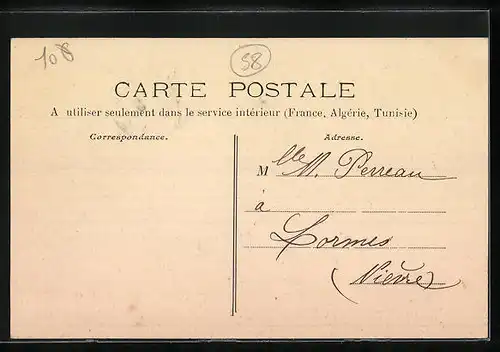 108
58
CARTE POSTALE
A utiliser seulement dans le service intérieur (France, Algérie, Tunisie)
Correspondance.
Adresse.
Mlle M. Perreau
à
Lormes
(Nièvre)